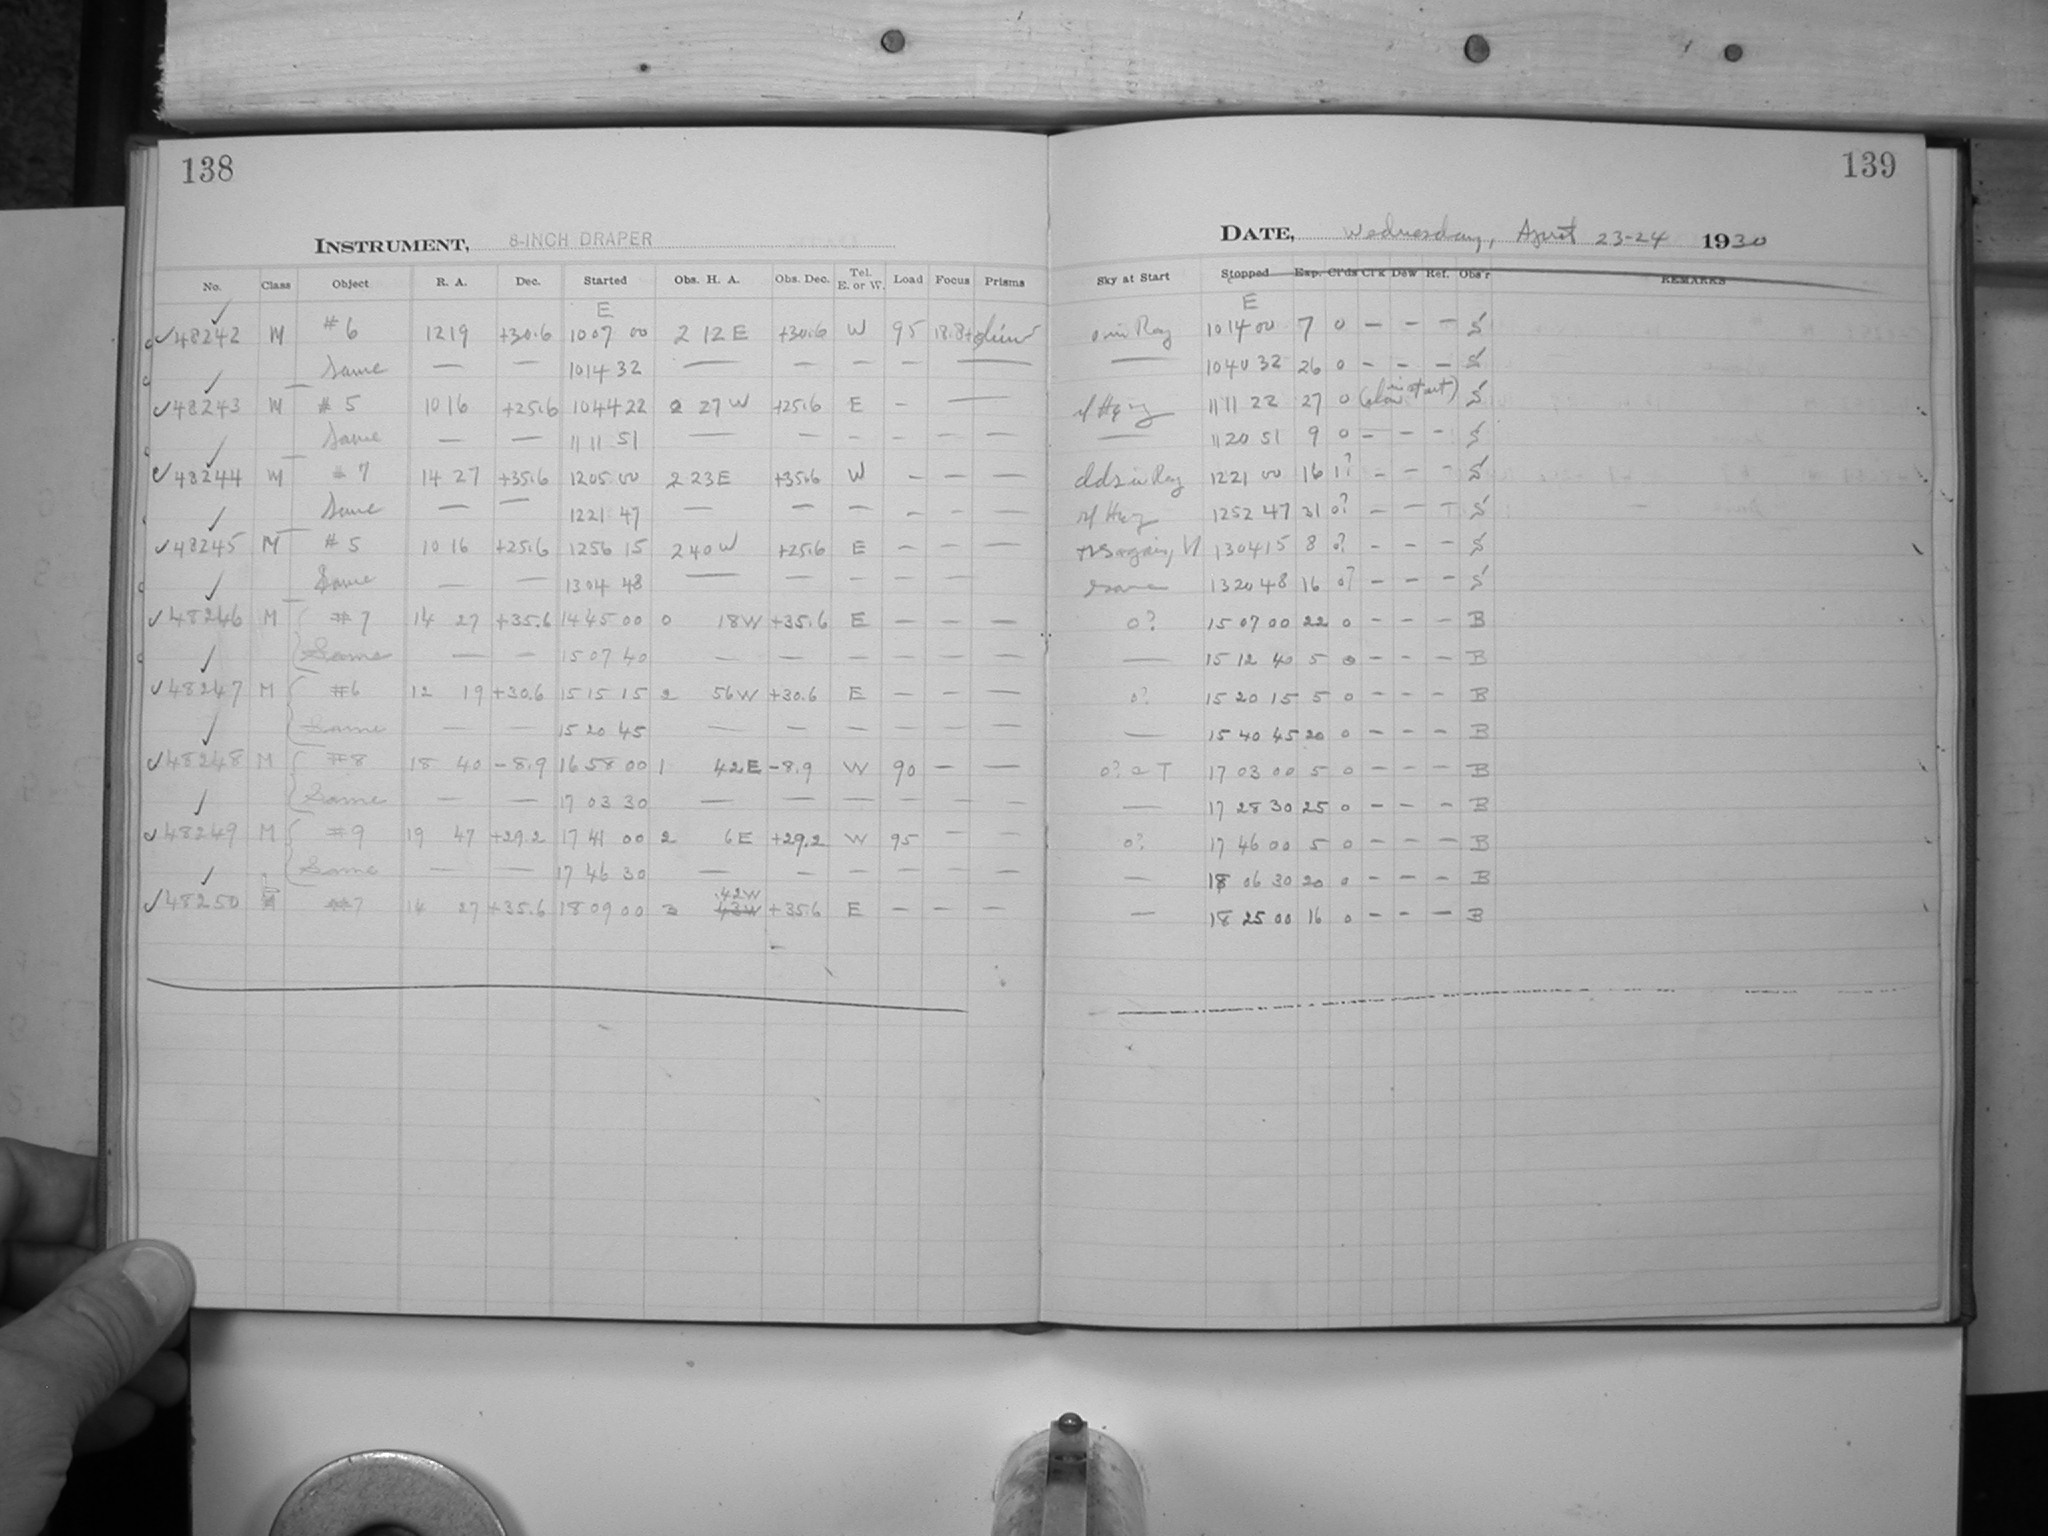 138
INSTRUMENT, 8-INCH DRAPER
No. Class Object R. A. Dec. Started Obs. H. A. Obs. Dec. Tel. E. or W. Load Focus Prisms
E
✓48242 M #6 12 19 +30.6 10 07 00 2 12 E +30.6 W 95 18.8
✓ Same — — 10 14 32 — — — — — —
✓48243 M #5 10 16 +25.6 10 44 22 2 27 W +25.6 E - —
✓ Same — — 11 11 51 — — — — — —
✓48244 M #7 14 27 +35.6 12 05 00 2 23 E +35.6 W - — —
✓ Same — — 12 21 47 — — — — — —
✓48245 M #5 10 16 +25.6 12 56 15 2 40 W +25.6 E — — —
✓ Same — — 13 04 48 — — — — —
✓48246 M #7 14 27 +35.6 14 45 00 0 18 W +35.6 E — — —
✓ Same — — 15 07 40 — — — — — —
✓48247 M #6 12 19 +30.6 15 15 15 2 56 W +30.6 E — — —
✓ Same — — 15 20 45 — — — — — —
✓48248 M #8 18 40 -8.9 16 58 00 1 42 E -8.9 W 90 — —
✓ Same — — 17 03 30 — — — — — —
✓48249 M #9 19 47 +29.2 17 41 00 2 6 E +29.2 W 95 — —
✓ Same — — 17 46 30 — — — — — —
✓48250 #7 14 27 +35.6 18 09 00 3 42 W 43 W +35.6 E — — —
139
DATE, Wednesday, April 23-24 1930
Sky at Start Stopped Exp. Cl'ds Cl'k Dew Ref. Obs'r REMARKS
E
10 14 00 7 0 — — — S
— 10 40 32 26 0 — — — S
11 11 22 27 0 (slow in start) S
— 11 20 51 9 0 — — — S
12 21 00 16 1? — — — S
12 52 47 31 0? — — — S
13 04 15 8 0? — — — S
same 13 20 48 16 0? — — — S
0? 15 07 00 22 0 — — — B
— 15 12 40 5 0 — — — B
0? 15 20 15 5 0 — — — B
— 15 40 45 20 0 — — — B
0? T 17 03 00 5 0 — — — B
— 17 28 30 25 0 — — — B
0? 17 46 00 5 0 — — — B
— 18 06 30 20 0 — — — B
— 18 25 00 16 0 — — — B